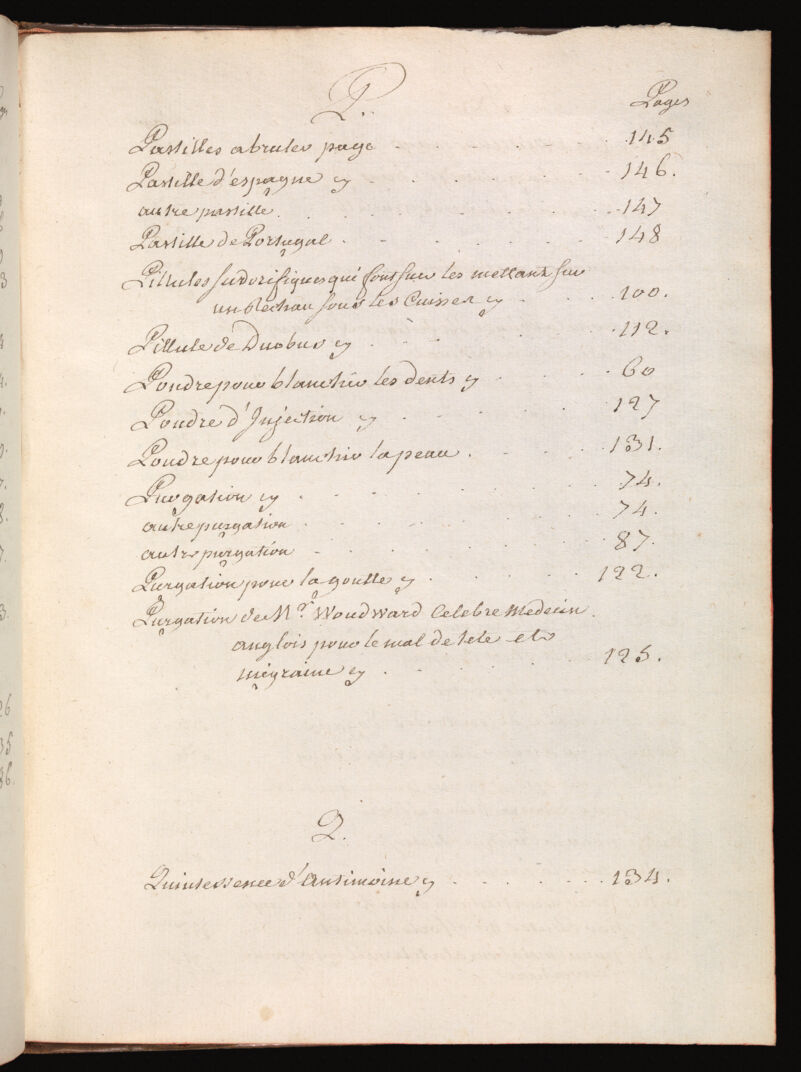 P.
Pages
Pastilles a bruler page 145
Pastille d'espagne 146.
autre pastille. 147
Pastille de Portugal. 148
Pillules sudorifiques qui font suer les mettant sur
un Rechau sous les Cuisses 100.
Pillule de Duobus 112.
Poudre pour blanchir les dents 60
Poudre d'Injection 127
Poudre pour blanchir la peau. 131.
Purgation 74.
autre purgation 74.
autre purgation 87.
Purgation pour la goutte 122.
Purgation de Mr. Woudward Celebre Medecin
anglois pour le mal de tete et
migraine 125.
Q.
Quintessence d'Antimoine 134.